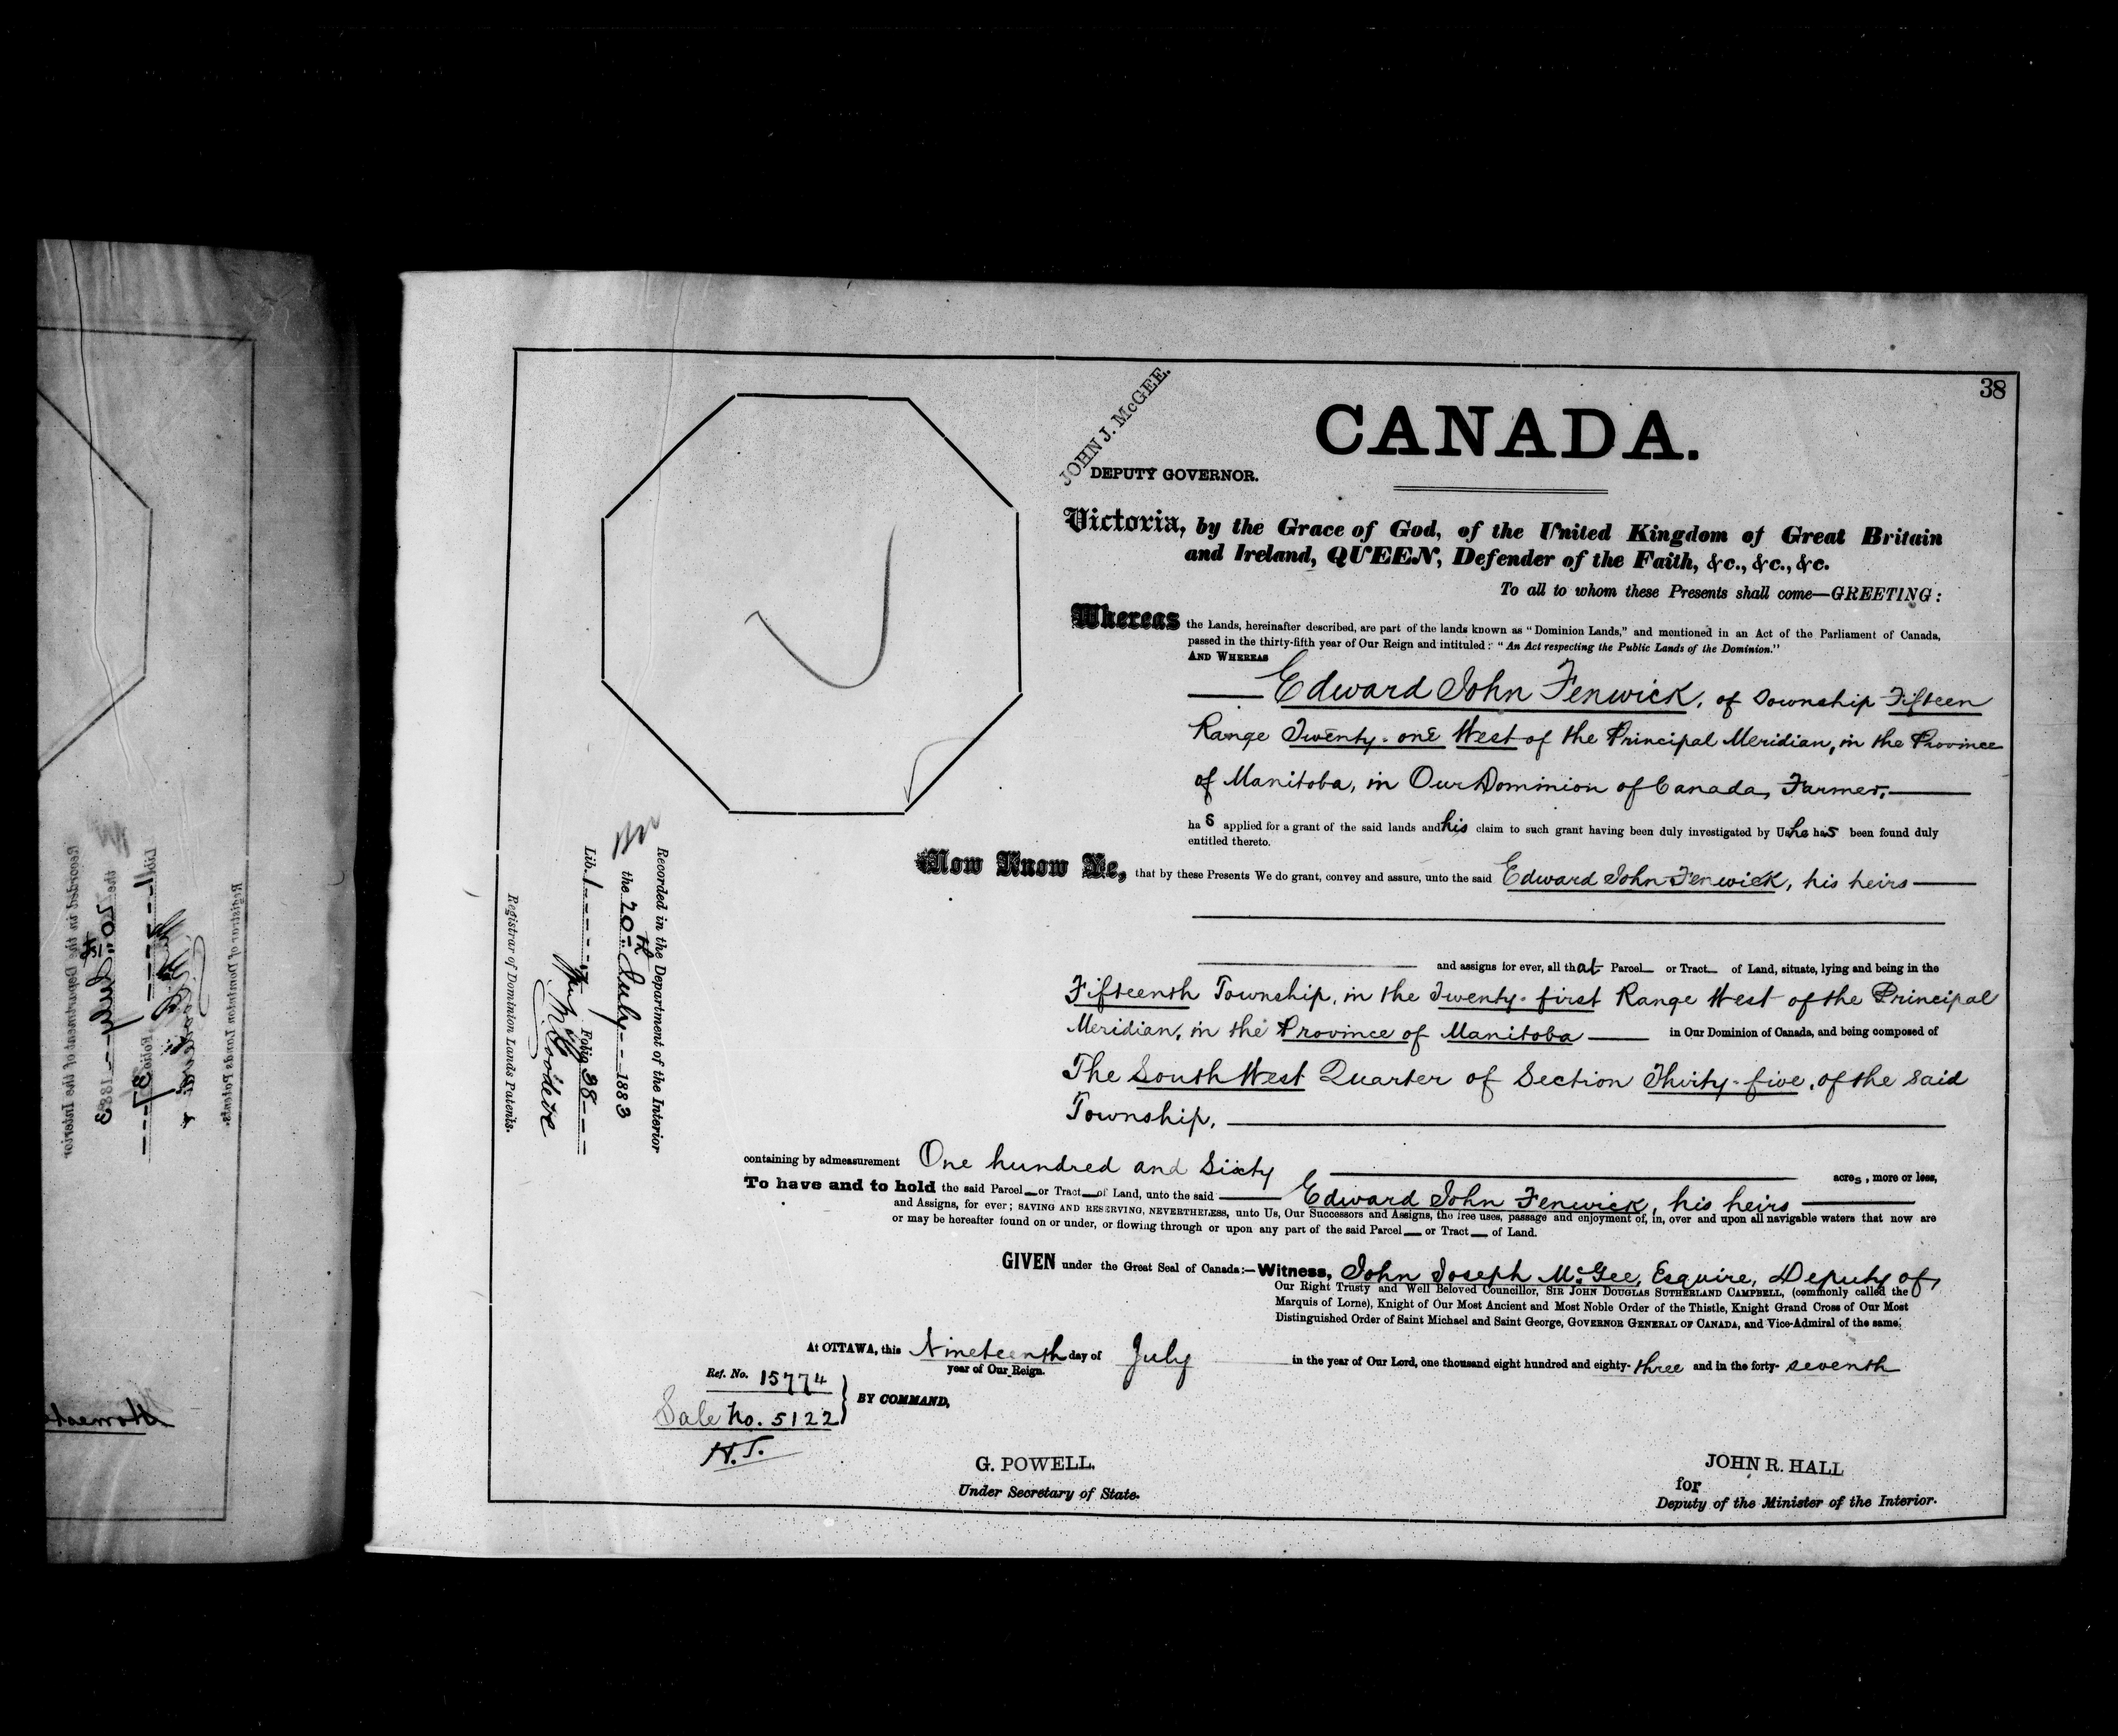 38
CANADA.
JOHN J. McGEE.
DEPUTY GOVERNOR.
Victoria, by the Grace of God, of the United Kingdom of Great Britain
and Ireland, QUEEN, Defender of the Faith, &c., &c., &c.
To all to whom these Presents shall come—GREETING:
Whereas the Lands, hereinafter described, are part of the lands known as "Dominion Lands," and mentioned in an Act of the Parliament of Canada,
passed in the thirty-fifth year of Our Reign and intituled: "An Act respecting the Public Lands of the Dominion."
AND WHEREAS
Edward John Fenwick, of Township Fifteen
Range Twenty-one West of the Principal Meridian, in the Province
of Manitoba, in Our Dominion of Canada, Farmer,
has applied for a grant of the said lands and his claim to such grant having been duly investigated by Us he has been found duly
entitled thereto.
Now Know Ye, that by these Presents We do grant, convey and assure, unto the said Edward John Fenwick, his heirs
and assigns for ever, all that Parcel or Tract of Land, situate, lying and being in the
Fifteenth Township, in the Twenty-first Range West of the Principal
Meridian, in the Province of Manitoba in Our Dominion of Canada, and being composed of
The South West Quarter of Section Thirty-five, of the said
Township,
containing by admeasurement One hundred and Sixty acres, more or less,
To have and to hold the said Parcel or Tract of Land, unto the said Edward John Fenwick, his heirs
and Assigns, for ever; SAVING AND RESERVING, NEVERTHELESS, unto Us, Our Successors and Assigns, the free uses, passage and enjoyment of, in, over and upon all navigable waters that now are
or may be hereafter found on or under, or flowing through or upon any part of the said Parcel or Tract of Land.
GIVEN under the Great Seal of Canada:—Witness, John Joseph McGee, Esquire, Deputy of
Our Right Trusty and Well Beloved Councillor, SIR JOHN DOUGLAS SUTHERLAND CAMPBELL, (commonly called the
Marquis of Lorne), Knight of Our Most Ancient and Most Noble Order of the Thistle, Knight Grand Cross of Our Most
Distinguished Order of Saint Michael and Saint George, GOVERNOR GENERAL OF CANADA, and Vice-Admiral of the same.
At OTTAWA, this Nineteenth day of July in the year of Our Lord, one thousand eight hundred and eighty-three and in the forty-seventh
year of Our Reign.
Ref. No. 15774
Sale No. 5122
H.T.
BY COMMAND,
G. POWELL.
Under Secretary of State.
JOHN R. HALL
for
Deputy of the Minister of the Interior.
Recorded in the Department of the Interior
the 20th July 1883
Lib. 1 Folio 38
Registrar of Dominion Lands Patents.